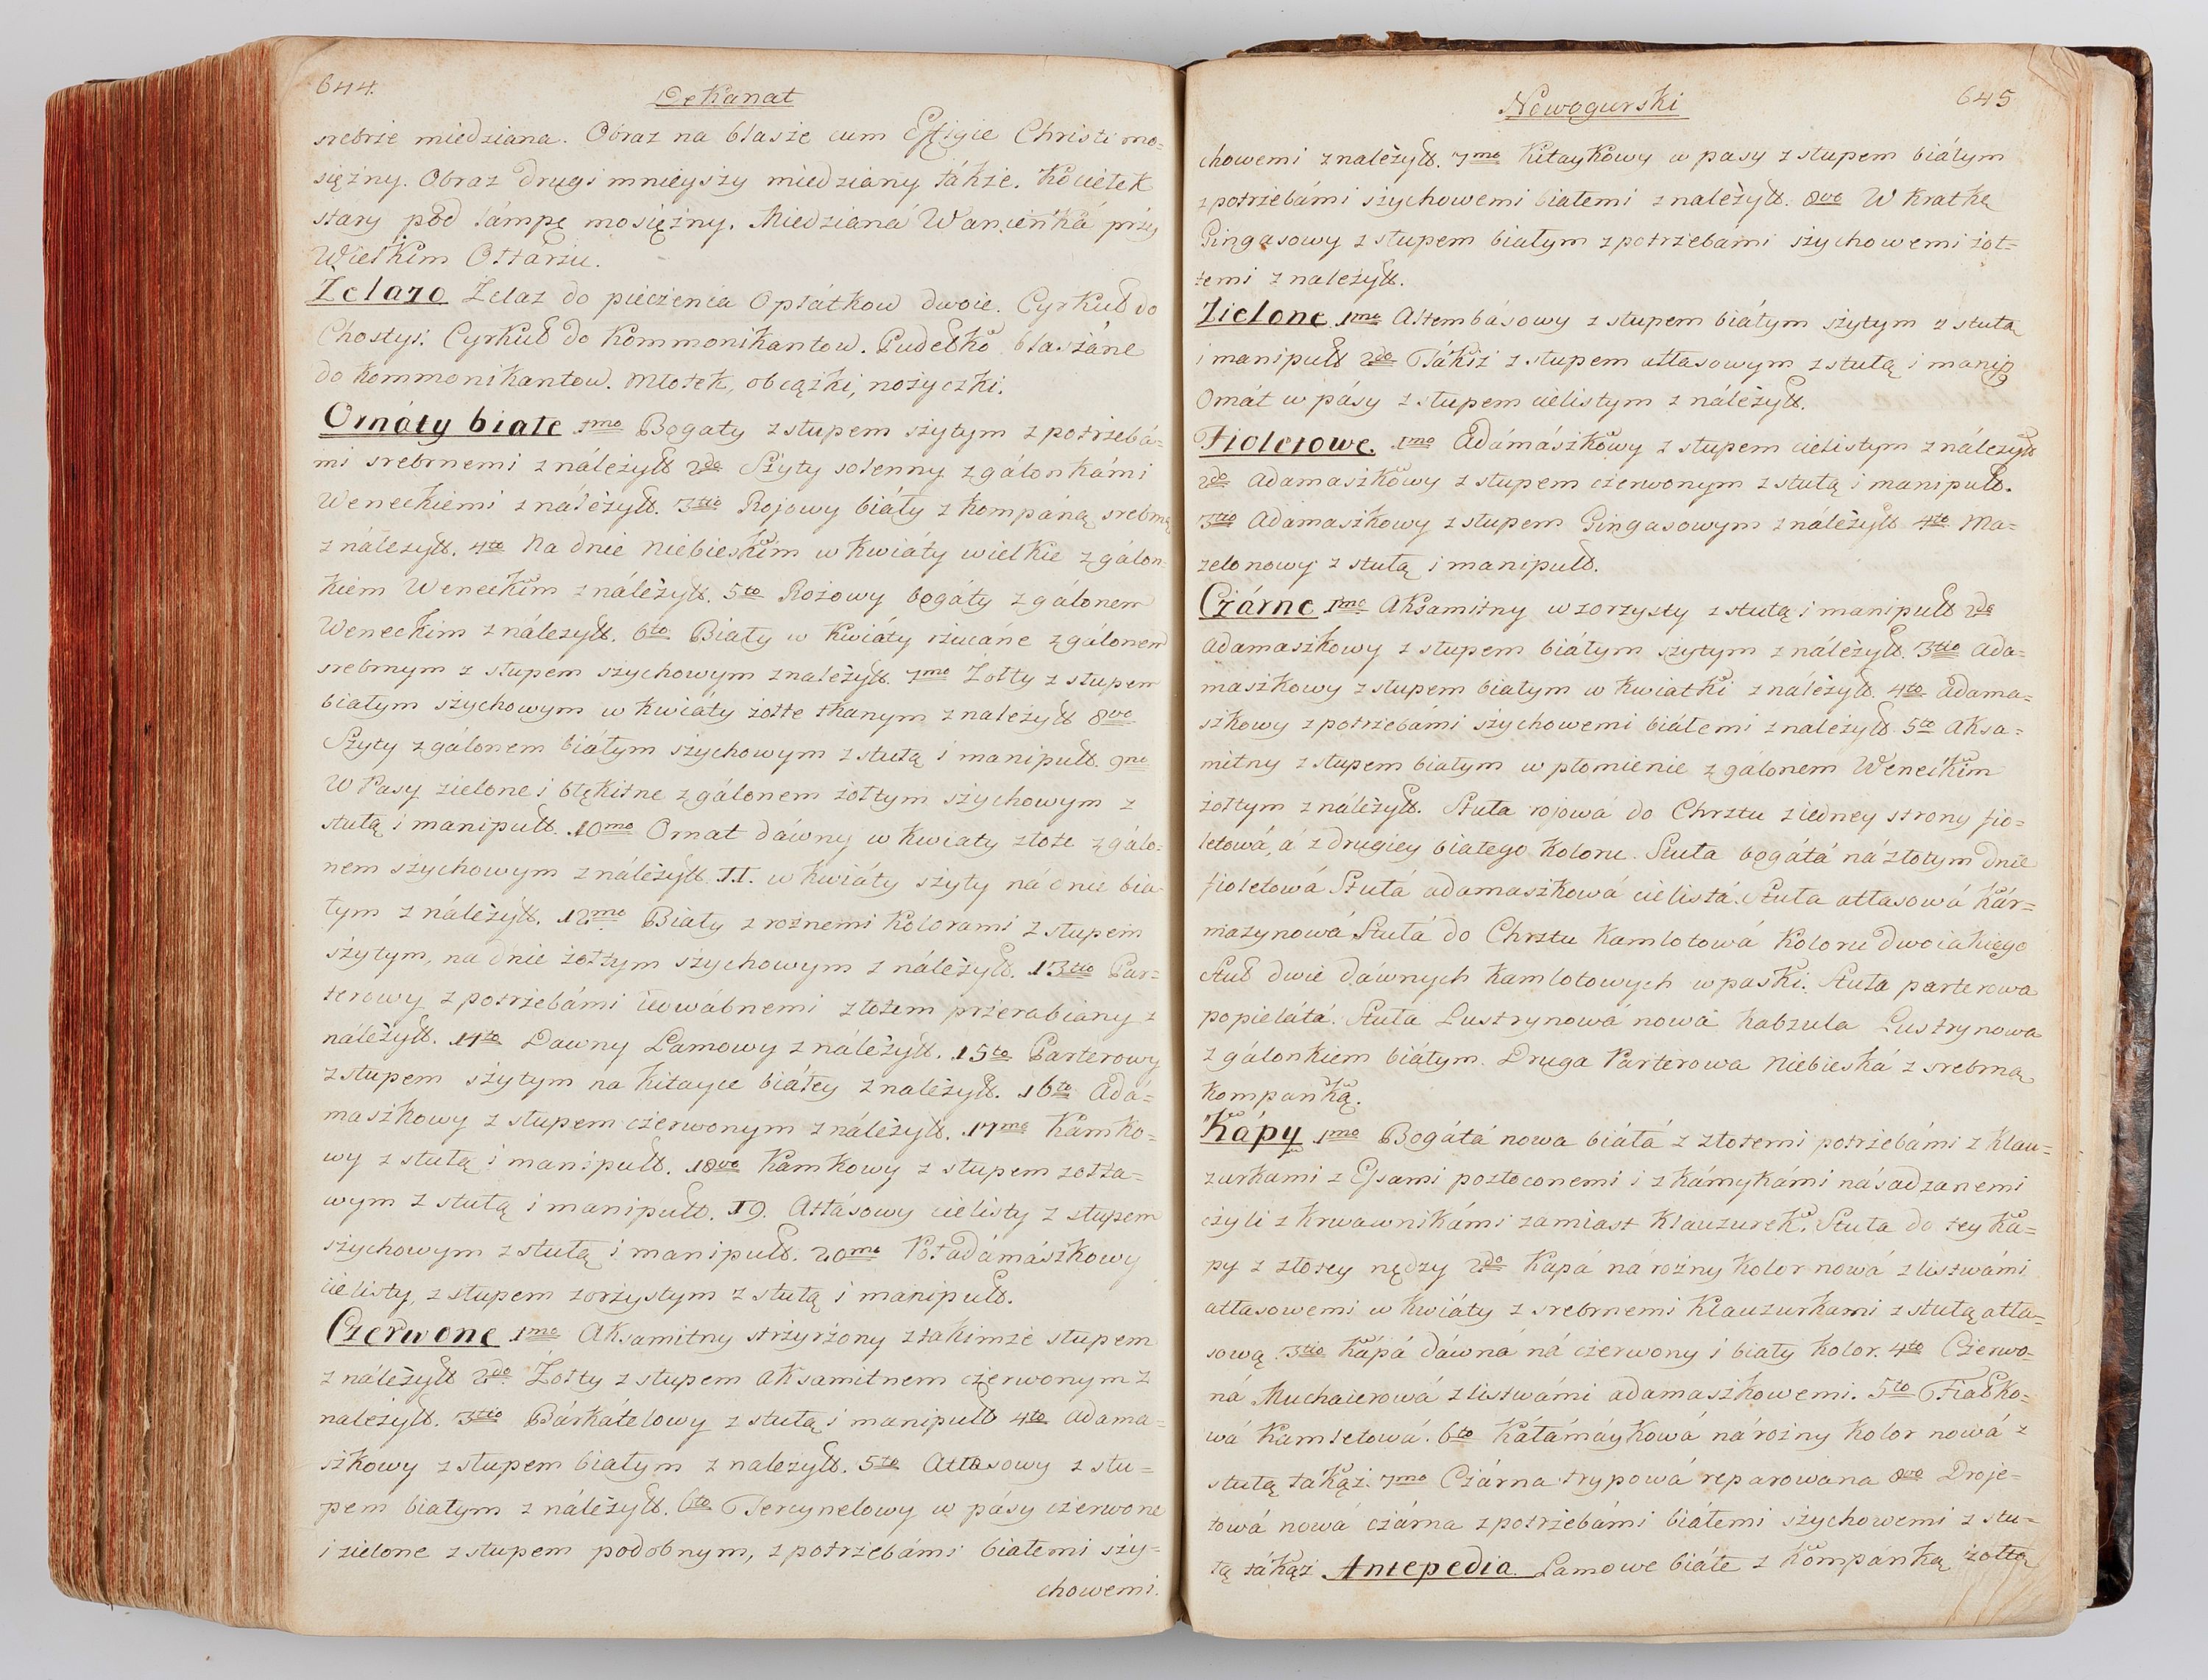 644.
Dekanat
srebrze miedziana. Obraz na blasze cum Effigie Christi mo=
siężny. Obraz drugi mnieyszy miedziany tákże. Kociełek
stary pod lámpę mosiężny. Miedziana Wanienká przy
Wielkim Ołtarzu.
Żelazo Żelaz do pieczenia Opłátkow dwoie. Cyrkuł do
Chostyi. Cyrkuł do Kommonikantow. Pudełko blaszáne
do Kommonikantow. Młotek, obcążki, nożyczki.
Ornáty białe 1mo Bogaty z stupem szytym z potrzebá=
mi srebrnemi z náleżytt. 2do Szyty solenny z gálonkámi
Weneckiemi z náleżytt. 3tio Rojowy biáły z kompáną srebrną
z náleżytt. 4to Na dnie Niebieskim w kwiáty wielkie z gálon=
kiem Weneckim z náleżytt. 5to Rożowy bogáty z gálonem
Weneckim z náleżytt. 6to Biały w kwiáty rzucáne z gálonem
srebrnym z stupem szychowym z należytt. 7mo Żołty z stupem
białym szychowym w kwiáty żołte tkanym z należytt 8vo
Szyty z gálonem biáłym szychowym z stułą i manipułt. 9no
W Pasy zielone i błękitne z gálonem żołtym szychowym z
stułą i manipułt. 10mo Ornat dáwny w kwiaty złote z gálo=
nem szychowym z náleżytt. II. w kwiáty szyty ná dnie bia=
łym z náleżytt. 12mo Biały z rożnemi kolorami z stupem
szytym, na dnie żołtym szychowym z náleżytt. 13tio Par=
terowy z potrzebámi iedwábnemi złotem przerabiány z
náleżytt. 14to Dawny Lamowy z náleżytt. 15to Parterowy
z stupem szytym na kitayce biáłey z należytt. 16to Adá=
maszkowy z stupem czerwonym z náleżytt. 17mo Kámko=
wy z stułą i manipułt. 18vo Kamkowy z stupem żołta=
wym z stułą i manipułt. 19. Atłásowy cielisty z stupem
szychowym z stułą i manipułt. 20mo Poładámászkowy
cielisty, z stupem zorzystym z stułą i manipułt.
Czerwone 1mo Aksamitny strzyrzony z takimże stupem
z náleżytt 2do Żołty z stupem aksamitnem czerwonym z
należytt. 3tio Bárkátelowy z stułą i manipułt 4to Adama=
szkowy z stupem białym z należytt. 5to Atłasowy z stu=
pem białym z náleżytt. 6to Tercynelowy w pásy czerwone
i zielone z stupem podobnym, z potrzebámi białemi szy=
chowemi.
Nowogurski
645
chowemi z należytt. 7mo Kitaykowy w pasy z stupem biáłym
z potrzebámi szychowemi białemi z należytt. 8vo W kratkę
Gingasowy z stupem białym z potrzebámi szychowemi żoł=
temi z należytt.
Zielone 1mo Ałtembásowy z stupem biáłym szytym z stułą
i manipułt 2do Tákiż z stupem atłasowym z stułą i manip
Ornát w pásy z stupem cielistym z náleżytt.
Fioletowe. 1mo Adámászkowy z stupem cielistym z náleżytt
2do Adamaszkowy z stupem czerwonym z stułą i manipułt.
3tio Adamaszkowy z stupem Gingasowym z náleżytt 4to Ma=
zelonowy z stułą i manipułt.
Czárne 1mo Aksamitny wzorzysty z stułą i manipułt 2do
Adamaszkowy z stupem biáłym szytym z náleżytt. 3tio Ada=
maszkowy z stupem białym w kwiatki z náleżytt. 4to Adama=
szkowy z potrzebámi szychowemi biáłemi z należytt 5to Aksa=
mitny z stupem białym w płomienie z gálonem Weneckim
żołtym z náleżytt. Stuła rojowá do Chrztu z iedney strony fio=
letowá, á z drugiey białego koloru. Stuła bogátá ná złotym dnie
fioletowá Stułá adamaszkowá cielistá. Stuła atłasowá kár=
mazynowá Stułá do Chrztu kamlotowá koloru dwoiakiego
Stuł dwie dáwnych kamlotowych w paski. Stuła parterowa
popieláta. Stuła Lustrynowá nowá kabzula Lustrynowa
z gálonkiem biáłym. Druga Parterowa Niebieská z srebrną
kompanką.
Kápy 1mo Bogátá nowa biáła z złotemi potrzebámi z klau=
zurkami z Esami pozłoconemi i z kámykámi násadzanemi
czyli z krwawnikámi zamiast klauzurek. Stuła do tey ká=
py z złotey nędzy 2do Kápá na rożny kolor nowá z listwámi
atłasowemi w kwiáty z srebrnemi klauzurkami z stułą atła=
sową. 3tio Kápá dáwná ná czerwony i biały kolor. 4to Czerwo=
ná Muchaierowá z listwámi adamaszkowemi. 5to Fiałko=
wá Kamletowá. 6to Káłámáykowá ná rożny kolor nowá z
stułą takąż. 7mo Czárna trypowá reparowana 8vo Droje=
towá nowá czárna z potrzebámi biáłemi szychowemi z stu=
łą tákąż Antepedia Lamowe biáłe z kompánką żołtą